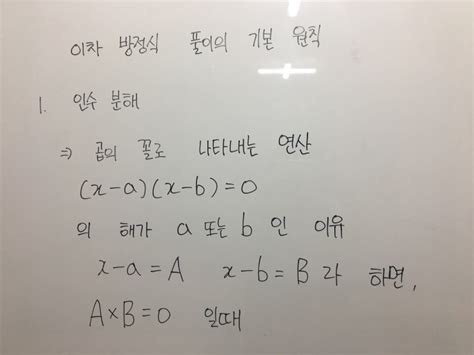 이차 방정식 풀이의 기본 원칙
1. 인수 분해
⇒ 곱의 꼴로 나타내는 연산
(x-a)(x-b)=0
의 해가 a 또는 b 인 이유
x-a=A x-b=B 라 하면,
A×B=0 일때